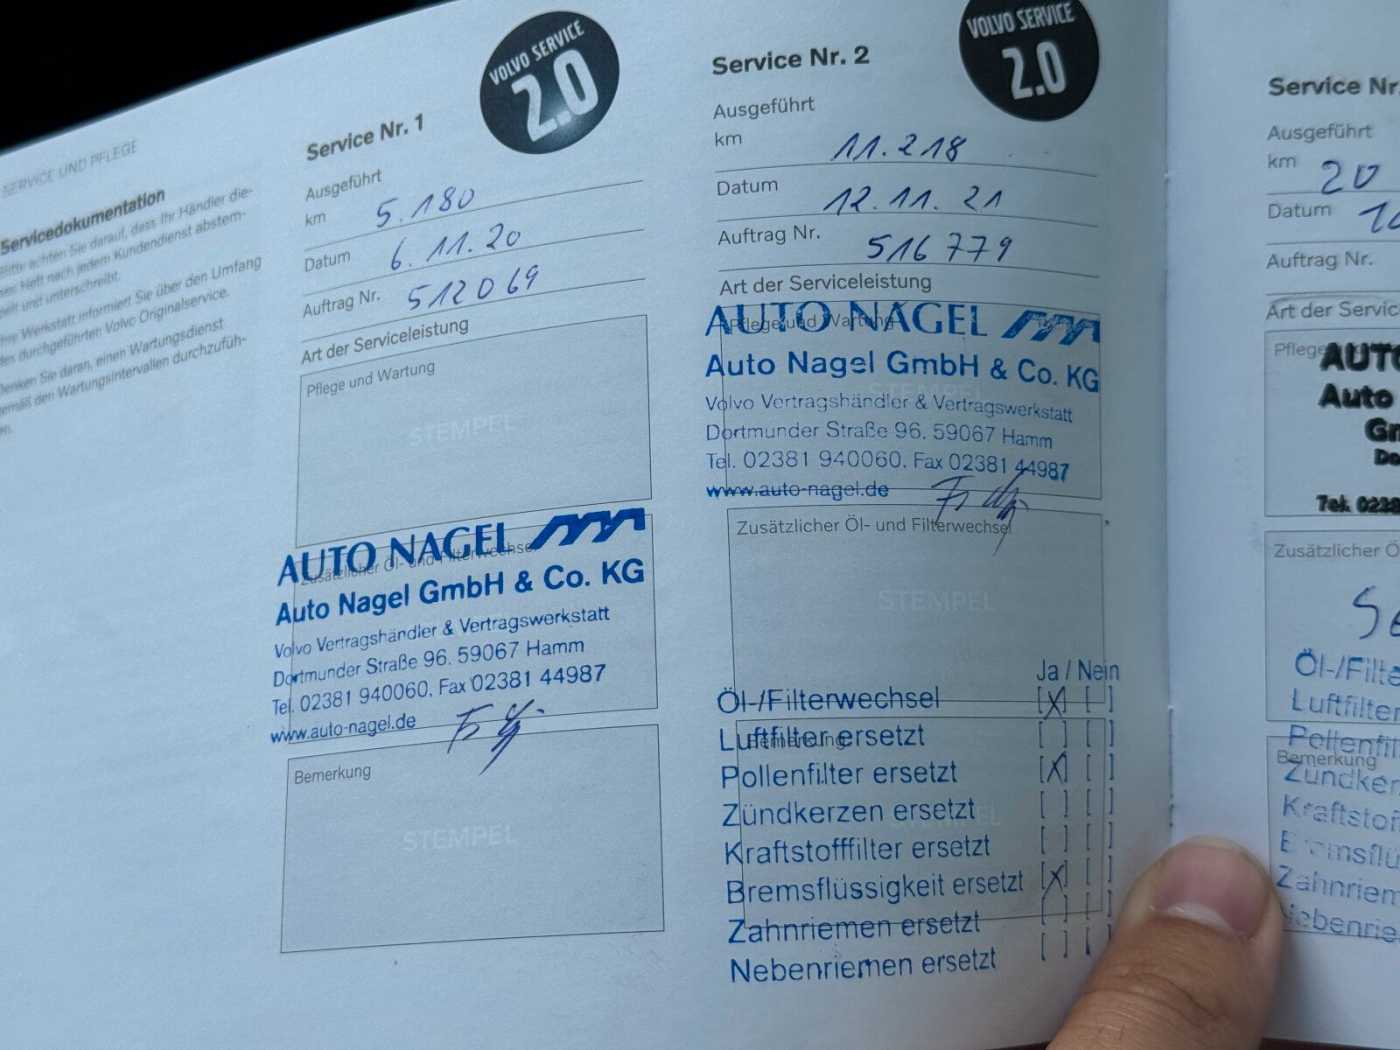 SERVICE UND PFLEGE
Servicedokumentation
Bitte achten Sie darauf, dass Ihr Händler die-
ses Heft nach jedem Kundendienst abstem-
pelt und unterschreibt.
Ihre Werkstatt informiert Sie über den Umfang
des durchgeführten Volvo Originalservice.
Denken Sie daran, einen Wartungsdienst
gemäß den Wartungsintervallen durchzufüh-
ren.
VOLVO SERVICE
2.0
Service Nr. 1
Ausgeführt
km 5.180
Datum 6.11.20
Auftrag Nr. 512069
Art der Serviceleistung
Pflege und Wartung
STEMPEL
Zusätzlicher Öl- und Filterwechsel
AUTO NAGEL
Auto Nagel GmbH & Co. KG
Volvo Vertragshändler & Vertragswerkstatt
Dortmunder Straße 96. 59067 Hamm
Tel. 02381 940060. Fax 02381 44987
www.auto-nagel.de
Bemerkung
STEMPEL
VOLVO SERVICE
2.0
Service Nr. 2
Ausgeführt
km 11.218
Datum 12.11.21
Auftrag Nr. 516779
Art der Serviceleistung
Pflege und Wartung
AUTO NAGEL
Auto Nagel GmbH & Co. KG
Volvo Vertragshändler & Vertragswerkstatt
Dortmunder Straße 96. 59067 Hamm
Tel. 02381 940060. Fax 02381 44987
www.auto-nagel.de
Zusätzlicher Öl- und Filterwechsel
STEMPEL
Ja / Nein
Öl-/Filterwechsel [X] [ ]
Bemerkung
Luftfilter ersetzt [ ] [ ]
Pollenfilter ersetzt [X] [ ]
Zündkerzen ersetzt [ ] [ ]
Kraftstofffilter ersetzt [ ] [ ]
Bremsflüssigkeit ersetzt [X] [ ]
Zahnriemen ersetzt [ ] [ ]
Nebenriemen ersetzt [ ] [ ]
Service Nr.
Ausgeführt
km 20
Datum
Auftrag Nr.
Art der Servic
Pflege
AUTO
Auto
Gm
Do
Tel. 0238
Zusätzlicher Ö
Se
Öl-/Filte
Luftfilter
Pollenfil
Bemerkung
Zündker
Kraftstof
Bremsflü
Zahnriem
Nebenrie